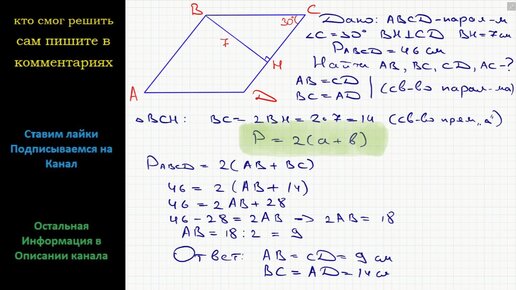 кто смог решить
сам пишите в
комментариях
Ставим лайки
Подписываемся на
Канал
Остальная
Информация в
Описании канала
B
C
30°
7
H
A
D
Дано: ABCD-парал-м
∠C=30° BH⊥CD BH=7см
PABCD = 46 см
Найти AB, BC, CD, AC-?
AB=CD
BC=AD
(св-во парал-ма)
△BCH: BC=2BH=2·7=14 (св-во прям „△")
P=2(a+b)
PABCD = 2(AB+BC)
46 = 2 (AB+14)
46 = 2AB+28
46-28=2AB => 2AB=18
AB=18:2 = 9
Ответ: AB=CD=9 см
BC=AD=14см